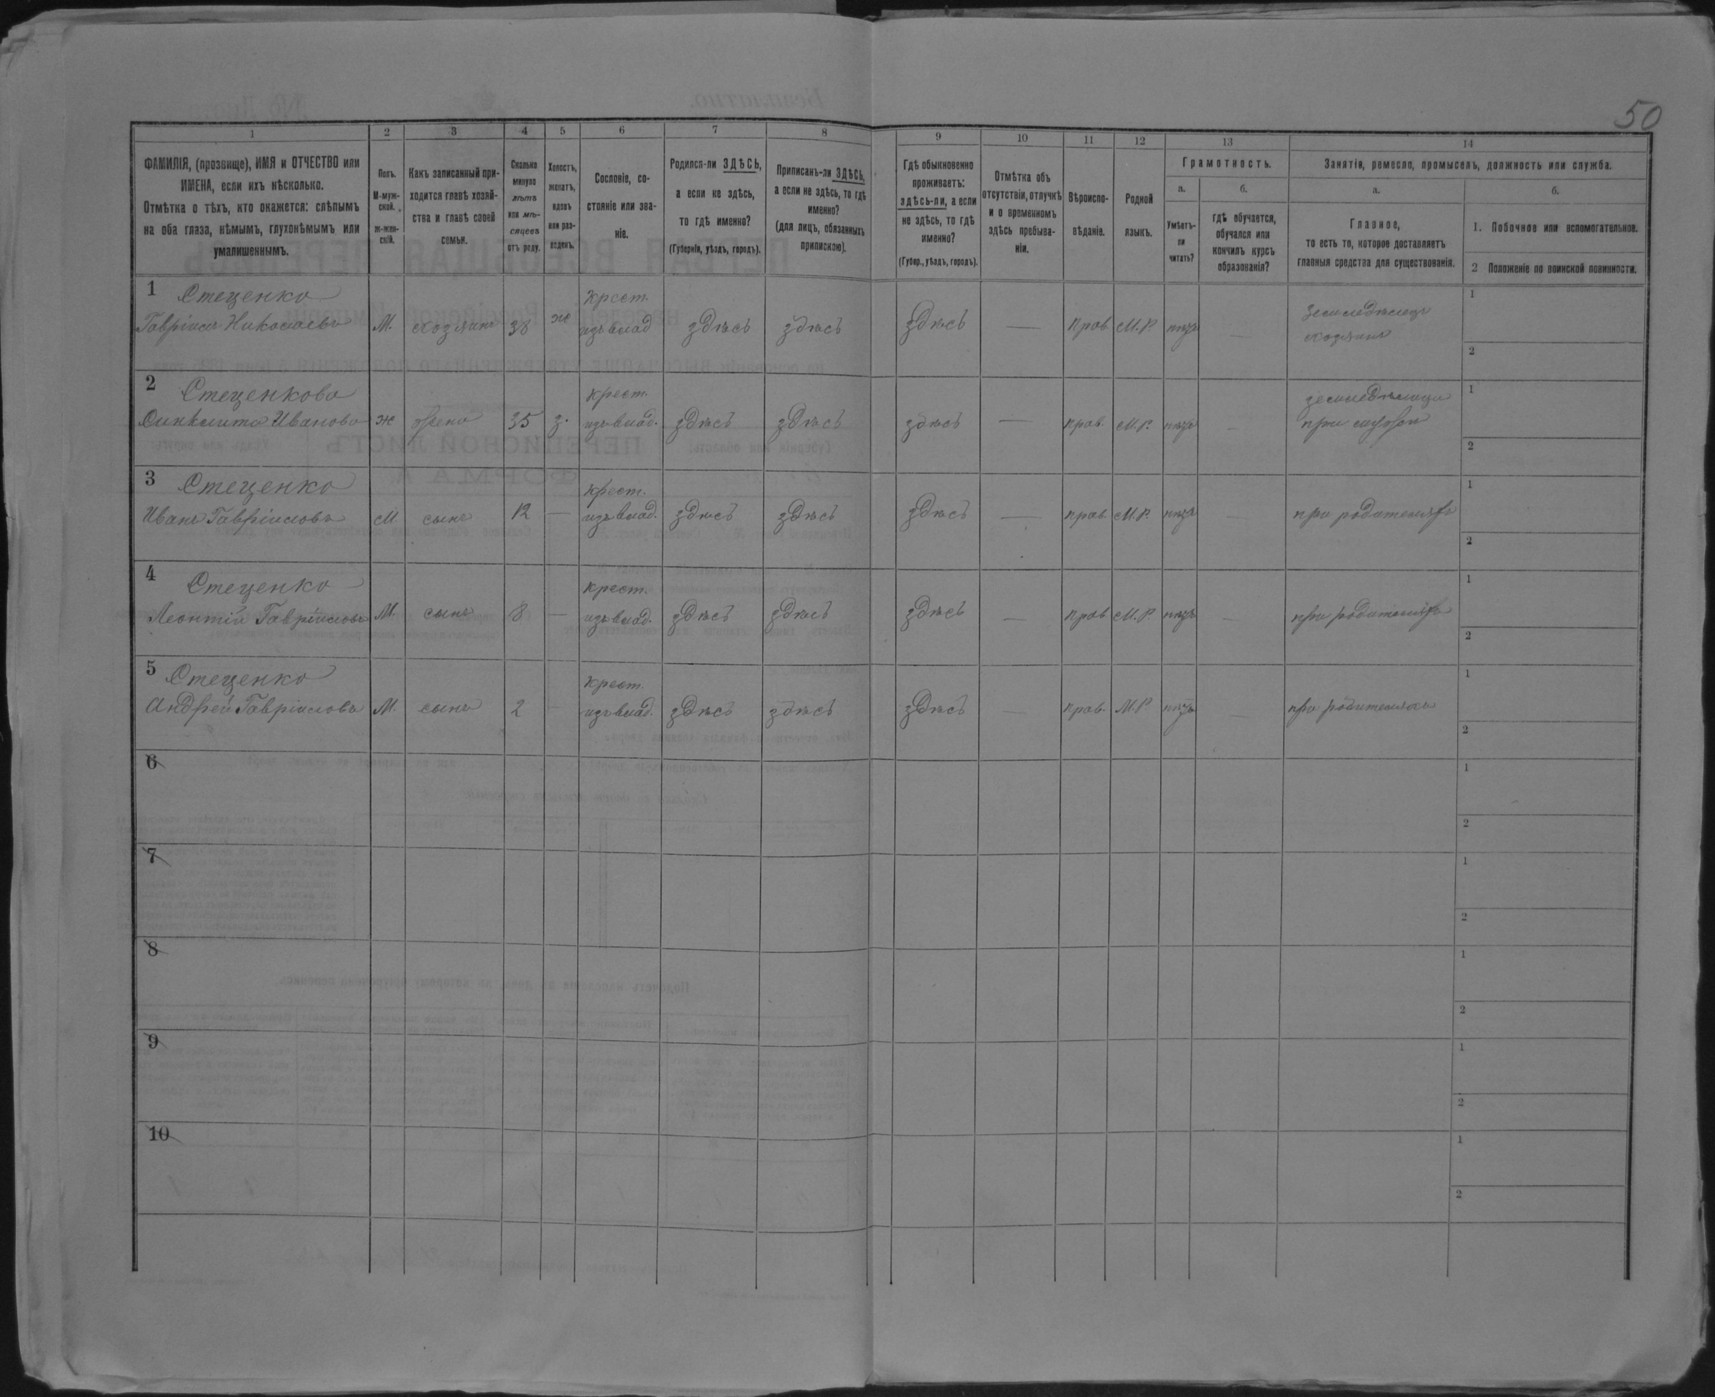 50
1 2 3 4 5 6 7 8 9 10 11 12 13 14
ФАМИЛІЯ, (прозвище), ИМЯ и ОТЧЕСТВО или
ИМЕНА, если ихъ нѣсколько.
Отмѣтка о тѣхъ, кто окажется: слѣпымъ
на оба глаза, нѣмымъ, глухонѣмымъ или
умалишеннымъ.
Полъ.
М-муж-
ской.
ж-жен-
скій.
Какъ записанный при-
ходится главѣ хозяй-
ства и главѣ своей
семьи.
Сколько
минуло
лѣтъ
или мѣ-
сяцевъ
отъ роду.
Холостъ,
женатъ,
вдовъ
или раз-
веденъ.
Сословіе, со-
стояніе или зва-
ніе.
Родился-ли ЗДѢСЬ,
а если не здѣсь,
то гдѣ именно?
(Губернія, уѣздъ, городъ).
Приписанъ-ли ЗДѢСЬ,
а если не здѣсь, то гдѣ
именно?
(для лицъ, обязанныхъ
припискою).
Гдѣ обыкновенно
проживаетъ:
здѣсь-ли, а если
не здѣсь, то гдѣ
именно?
(Губер., уѣздъ, городъ).
Отмѣтка объ
отсутствіи, отлучкѣ
и о временномъ
здѣсь пребыва-
ніи.
Вѣроиспо-
вѣданіе.
Родной
языкъ.
Грамотность.
а.
Умѣетъ-
ли
читать?
б.
гдѣ обучается,
обучался или
кончилъ курсъ
образованія?
Занятіе, ремесло, промыселъ, должность или служба.
а.
Главное,
то есть то, которое доставляетъ
главныя средства для существованія.
б.
1. Побочное или вспомогательное.
2 Положеніе по воинской повинности.
1 Стеценко Крест. земледѣлецъ 1
Гавріилъ Николаевъ М. хозяинъ 38 же изъ влад здѣсь здѣсь здѣсь — прав М.Р. — хозяинъ
2
2 Стеценкова Крест. 1
Ивановa ж жена 35 з. изъ влад. здѣсь здѣсь здѣсь — прав М.Р. — при
2
3 Стеценко Крест. 1
Иванъ Гавріиловъ М сынъ 12 — изъ влад. здѣсь здѣсь здѣсь — прав М.Р. — при родителяхъ
2
4 Стеценко Крест. 1
Леонтій Гавріиловъ М. сынъ 8 — изъ влад. здѣсь здѣсь здѣсь — прав М.Р. — при родителяхъ
2
5 Стеценко Крест. 1
Андрей Гавріиловъ М. сынъ 2 — изъ влад. здѣсь здѣсь здѣсь — прав. М.Р. — при родителяхъ
2
6 1
2
7 1
2
8 1
2
9 1
2
10 1
2